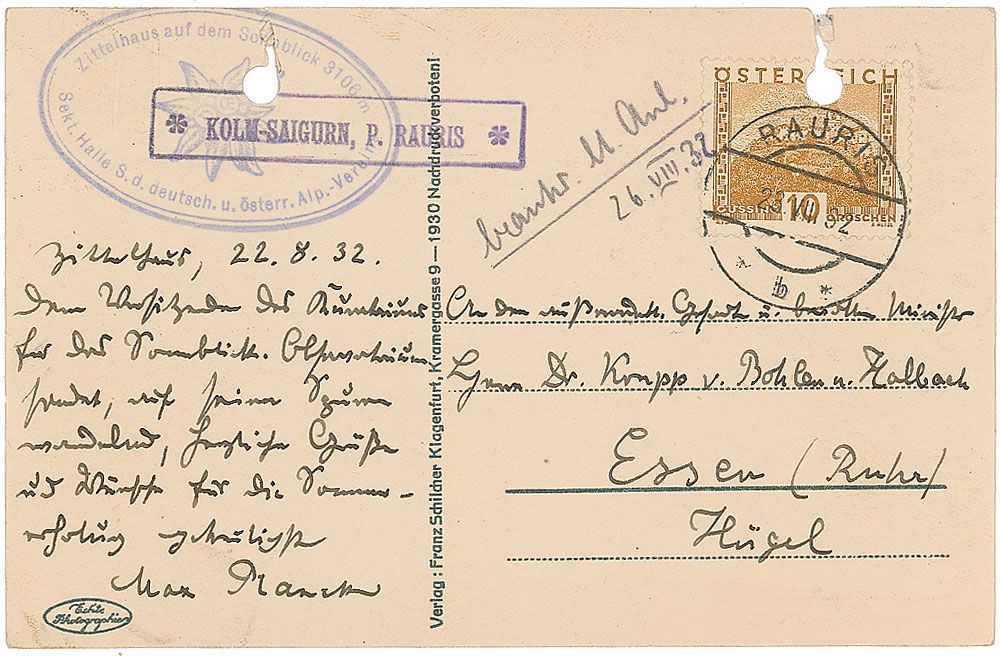 Zittelhaus auf dem Sonnblick 3106 m
Sekt. Halle S. d. deutsch. u. österr. Alp.-Verein
* KOLM-SAIGURN, P. RAURIS *
Zittelhaus, 22.8.32.
Dem Vorsitzenden des Kuratoriums
für das Sonnblick-Observatorium
sendet, auf seinen Spuren
wandelnd, herzliche Grüße
und Wünsche für die Sommer-
erholung
Max Planck
Echte
Photographie
Verlag: Franz Schilcher Klagenfurt, Kramergasse 9 — 1930 Nachdruck verboten!
beantw. U. Anl.
26.VIII.32
ÖSTERREICH
GÜSSING
10
GROSCHEN
RAURIS
23. VIII 32
* b *
An den außerordtl. Gesandten u. bevollm. Minister
Herrn Dr. Krupp v. Bohlen u. Halbach
Essen (Ruhr)
Hügel